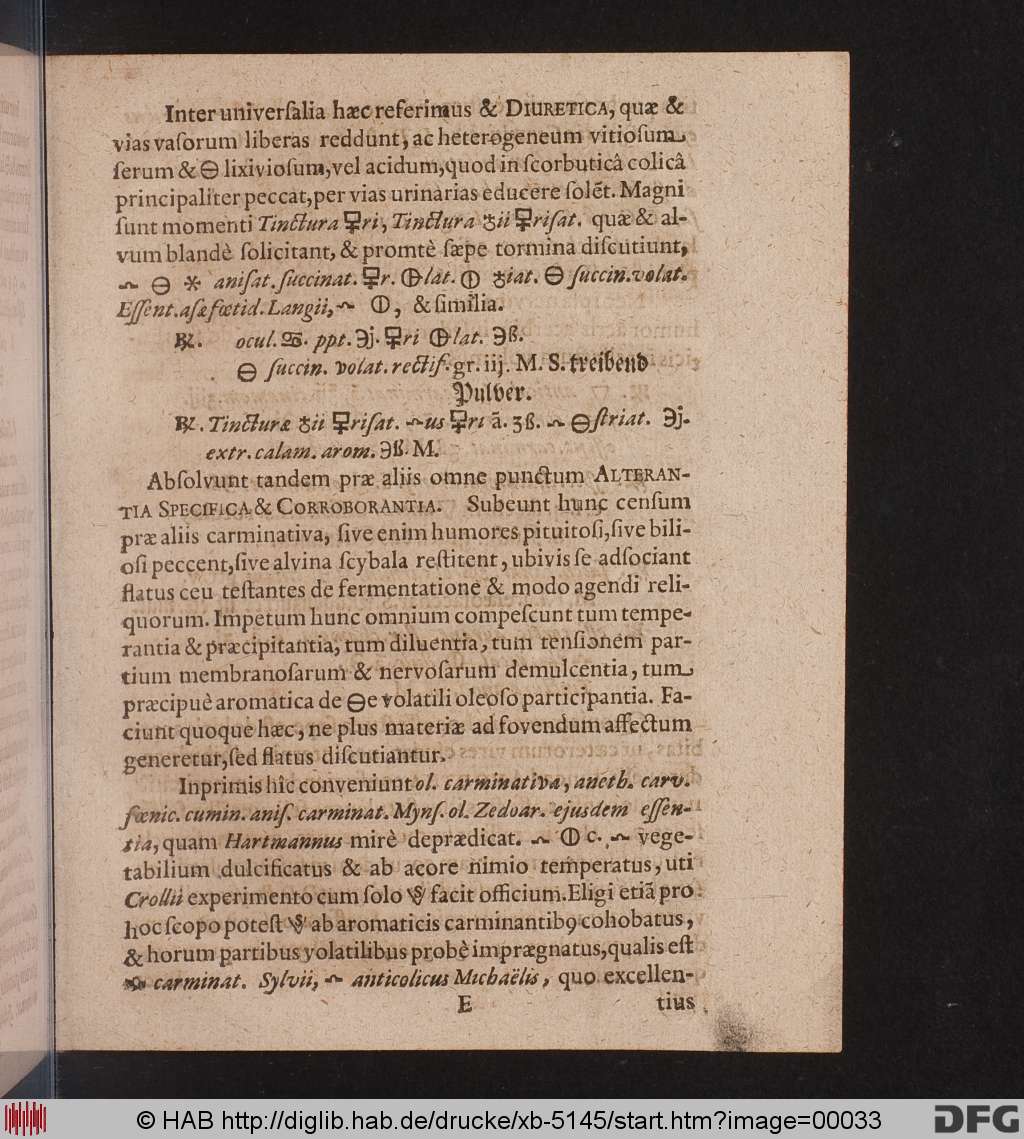 Inter univerſalia hæc referimus & DIURETICA, quæ &
vias vaſorum liberas reddunt, ac heterogeneum vitioſum
ſerum & 🜔 lixivioſum, vel acidum, quod in ſcorbuticâ colicâ
principaliter peccat, per vias urinarias educere ſolēt. Magni
ſunt momenti Tinctura 🜿ri, Tinctura ♁ii 🜿riſat. quæ & al-
vum blandè ſolicitant, & promtè ſæpe tormina diſcutiunt,
🜔 🞶 aniſat. ſuccinat. 🜿r. 🜨lat. 🜕 ♁iat. 🜔 ſuccin. volat.
Eſſent. aſæ fœtid. Langii, 🜕, & ſimilia.
℞. ocul. ♋. ppt. ℈j. 🜿ri 🜨lat. ℈ß.
🜔 ſuccin. volat. rectif. gr. iij. M. S. treibend
Pulver.
℞. Tincturæ ♁ii 🜿riſat. us 🜿ri ā. ʒß. 🜔ſtriat. ℈j.
extr. calam. arom. ℈ß. M.
Abſolvunt tandem præ aliis omne punctum ALTERAN-
TIA SPECIFICA & CORROBORANTIA. Subeunt hunc cenſum
præ aliis carminativa, ſive enim humores pituitoſi, ſive bili-
oſi peccent, ſive alvina ſcybala reſtitent, ubivis ſe adſociant
flatus ceu teſtantes de fermentatione & modo agendi reli-
quorum. Impetum hunc omnium compeſcunt tum tempe-
rantia & præcipitantia, tum diluentia, tum tenſionem par-
tium membranoſarum & nervoſarum demulcentia, tum
præcipuè aromatica de 🜔e volatili oleoſo participantia. Fa-
ciunt quoque hæc, ne plus materiæ ad fovendum affectum
generetur, ſed flatus diſcutiantur.
Inprimis hîc conveniunt ol. carminativa, aneth. carv.
fœnic. cumin. aniſ. carminat. Mynſ. ol. Zedoar. ejusdem eſſen-
tia, quam Hartmannus mirè deprædicat. 🜕 c. vege-
tabilium dulcificatus & ab acore nimio temperatus, uti
Crollii experimento cum ſolo facit officium. Eligi etiā pro
hoc ſcopo poteſt ab aromaticis carminantibꝰ cohobatus,
& horum partibus volatilibus probè imprægnatus, qualis eſt
carminat. Sylvii, anticolicus Michaëlis, quo excellen-
E tius
© HAB http://diglib.hab.de/drucke/xb-5145/start.htm?image=00033
DFG